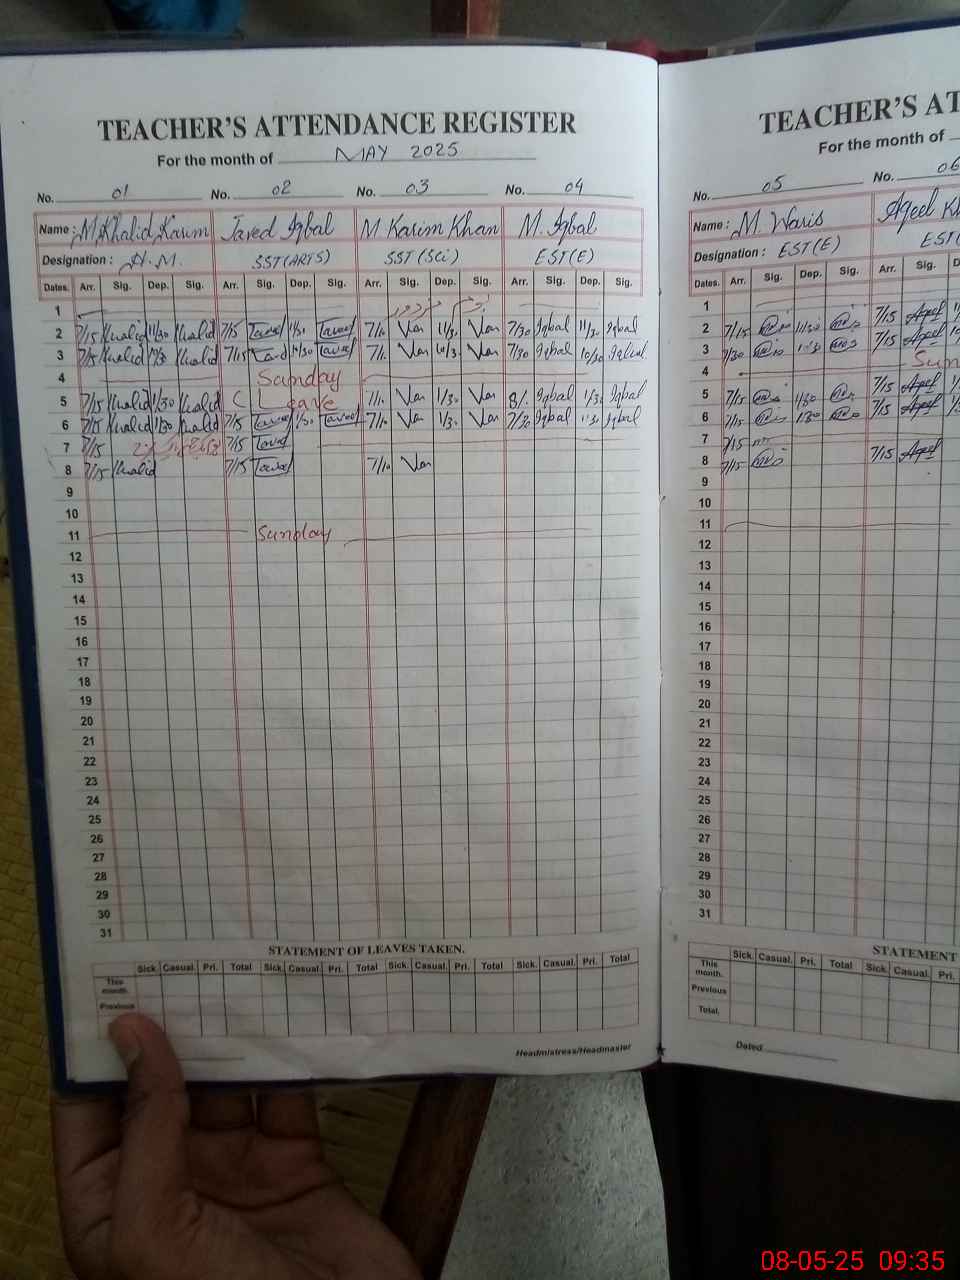 TEACHER'S ATTENDANCE REGISTER
For the month of MAY 2025
No. 01 No. 02 No. 03 No. 04
Name : M.Khalid Karim Javed Iqbal M Karim Khan M. Iqbal
Designation : H.M. SST(ARTS) SST(Sci) EST(E)
Dates. Arr. Sig. Dep. Sig. Arr. Sig. Dep. Sig. Arr. Sig. Dep. Sig. Arr. Sig. Dep. Sig.
1
2 7/15 Khalid 11/30 Khalid 7/15 Javed 11/30 Javed 7/10 11/30 7/30 Iqbal 11/30 Iqbal
3 7/15 Khalid Khalid 7/15 Javed 10/30 Javed 7/10 10/30 7/30 Iqbal 10/30 Iqbal
4 Sunday
5 7/15 Khalid 1/30 Khalid C Leave 7/10 1/30 8/- Iqbal 1/30 Iqbal
6 7/15 Khalid 1/30 Khalid 7/15 Javed 1/30 Javed 7/10 1/30 7/30 Iqbal 1/30 Iqbal
7 7/15 7/15 Javed
8 7/15 Khalid 7/15 Javed 7/10
9
10
11 Sunday
12
13
14
15
16
17
18
19
20
21
22
23
24
25
26
27
28
29
30
31
STATEMENT OF LEAVES TAKEN.
Sick. Casual. Pri. Total Sick. Casual. Pri. Total Sick. Casual. Pri. Total Sick. Casual. Pri. Total
This month.
Previous
Headmistress/Headmaster
TEACHER'S AT
For the month of
No. 05 No. 06
Name : M. Waris Aqeel Kh
Designation : EST(E) EST(
Dates. Arr. Sig. Dep. Sig. Arr. Sig. D
1
2 7/15 11/30 7/15 Aqeel
3 7/30 7/15 Aqeel
4 Sun
5 7/15 1/30 7/15 Aqeel
6 7/15 1/30 7/15 Aqeel
7 7/15
8 7/15 7/15 Aqeel
9
10
11
12
13
14
15
16
17
18
19
20
21
22
23
24
25
26
27
28
29
30
31
STATEMENT
Sick. Casual. Pri. Total Sick. Casual. Pri.
This month.
Previous
Total.
Dated
08-05-25 09:35